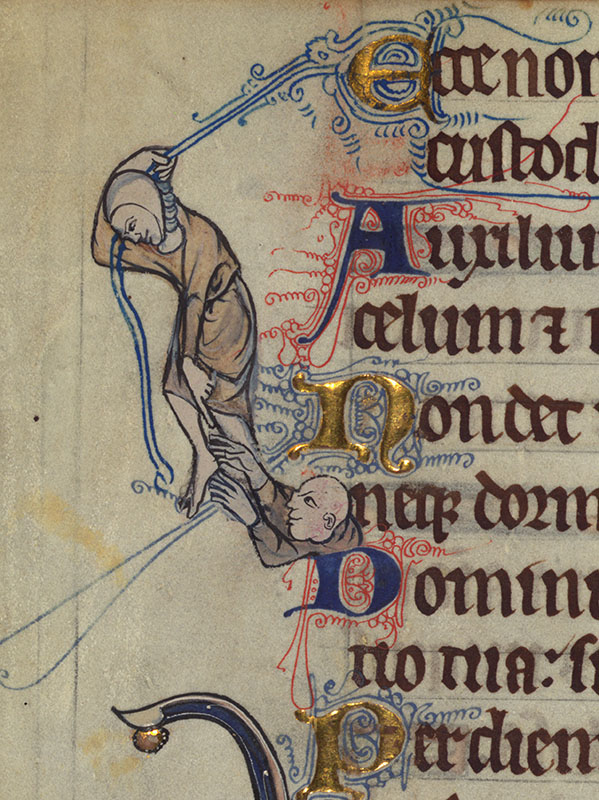 Ecce non
custod
Auxiliu
celum ⁊
Non det
neqꝫ dorm
Domin
tio tua: s
Per diem